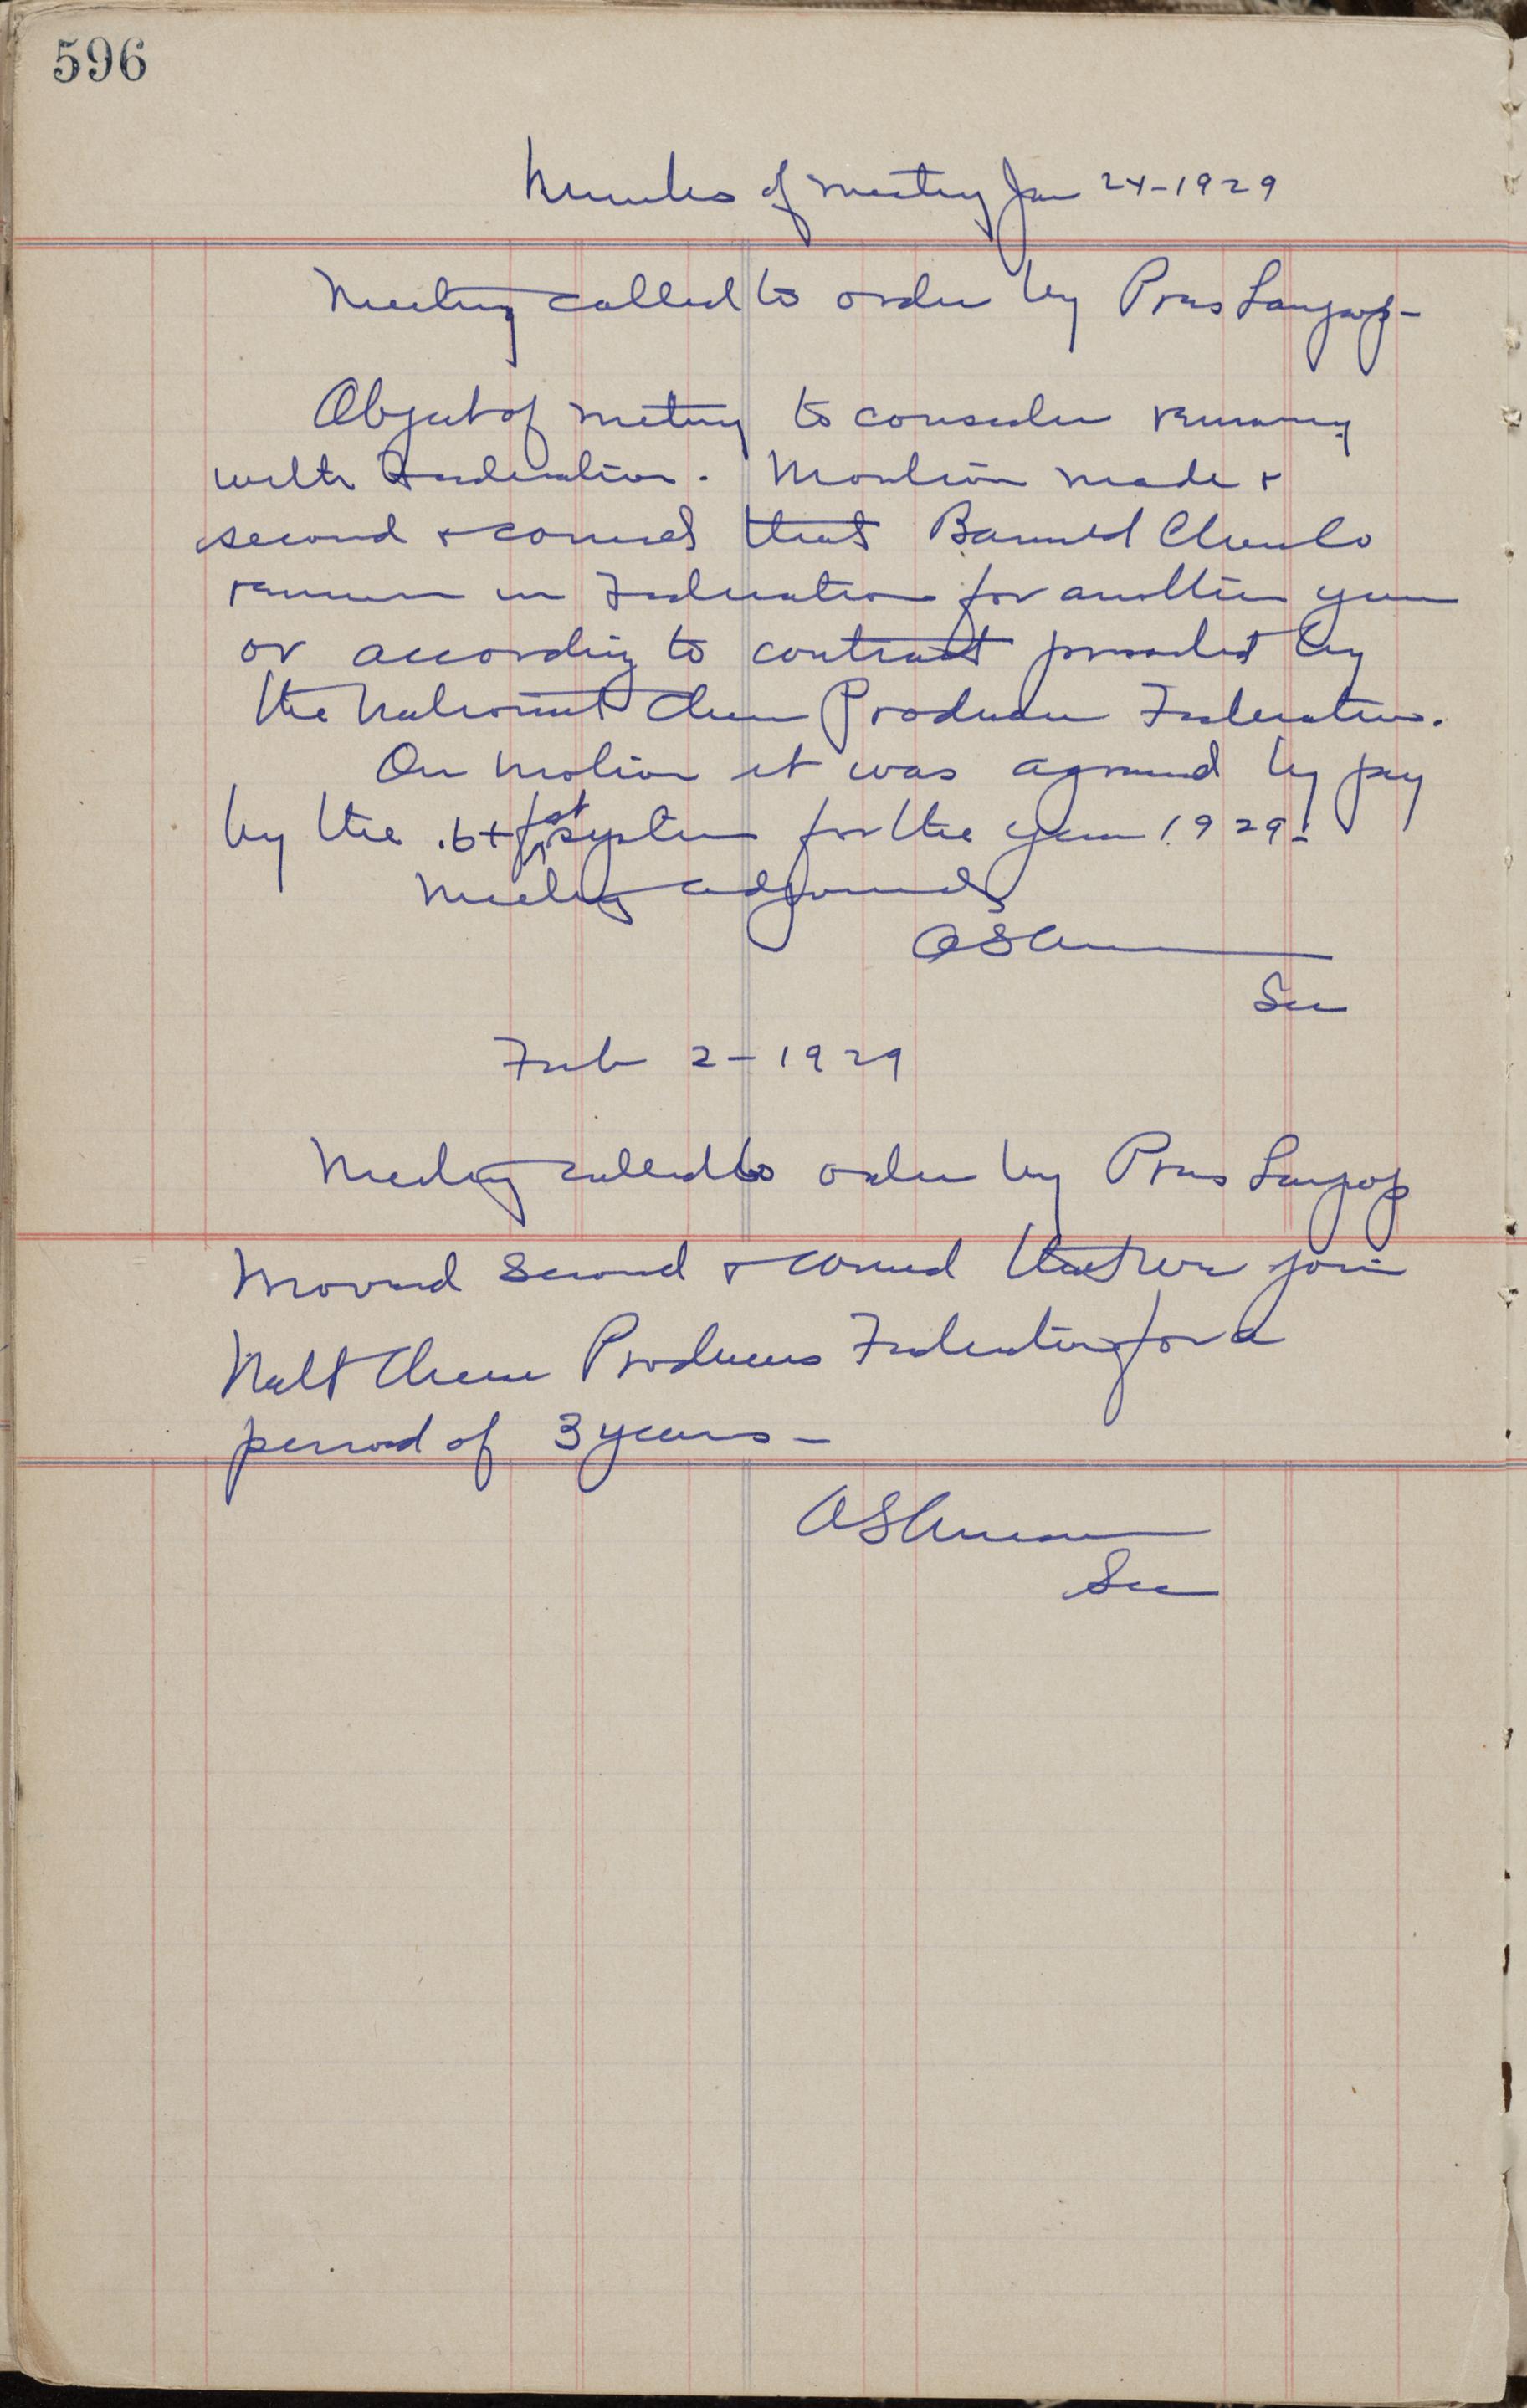 596
Minutes of meeting Jan 24-1929
Meeting called to order by Pres Langop-
Object of meeting to consider
with Federation. Motion made +
second + carried that Cheese Co
remain in Federation for another year
or according to contract by
the National Cheese Producer Federation.
On motion it was agreed by pay
by the .6+ fat system for the year 1929-
Meeting adjourned
Sec
Feb 2-1929
Meeting called to order by Pres Langop
Moved second + carried that we join
Natl Cheese Producers Federation for a
period of 3 years-
Sec